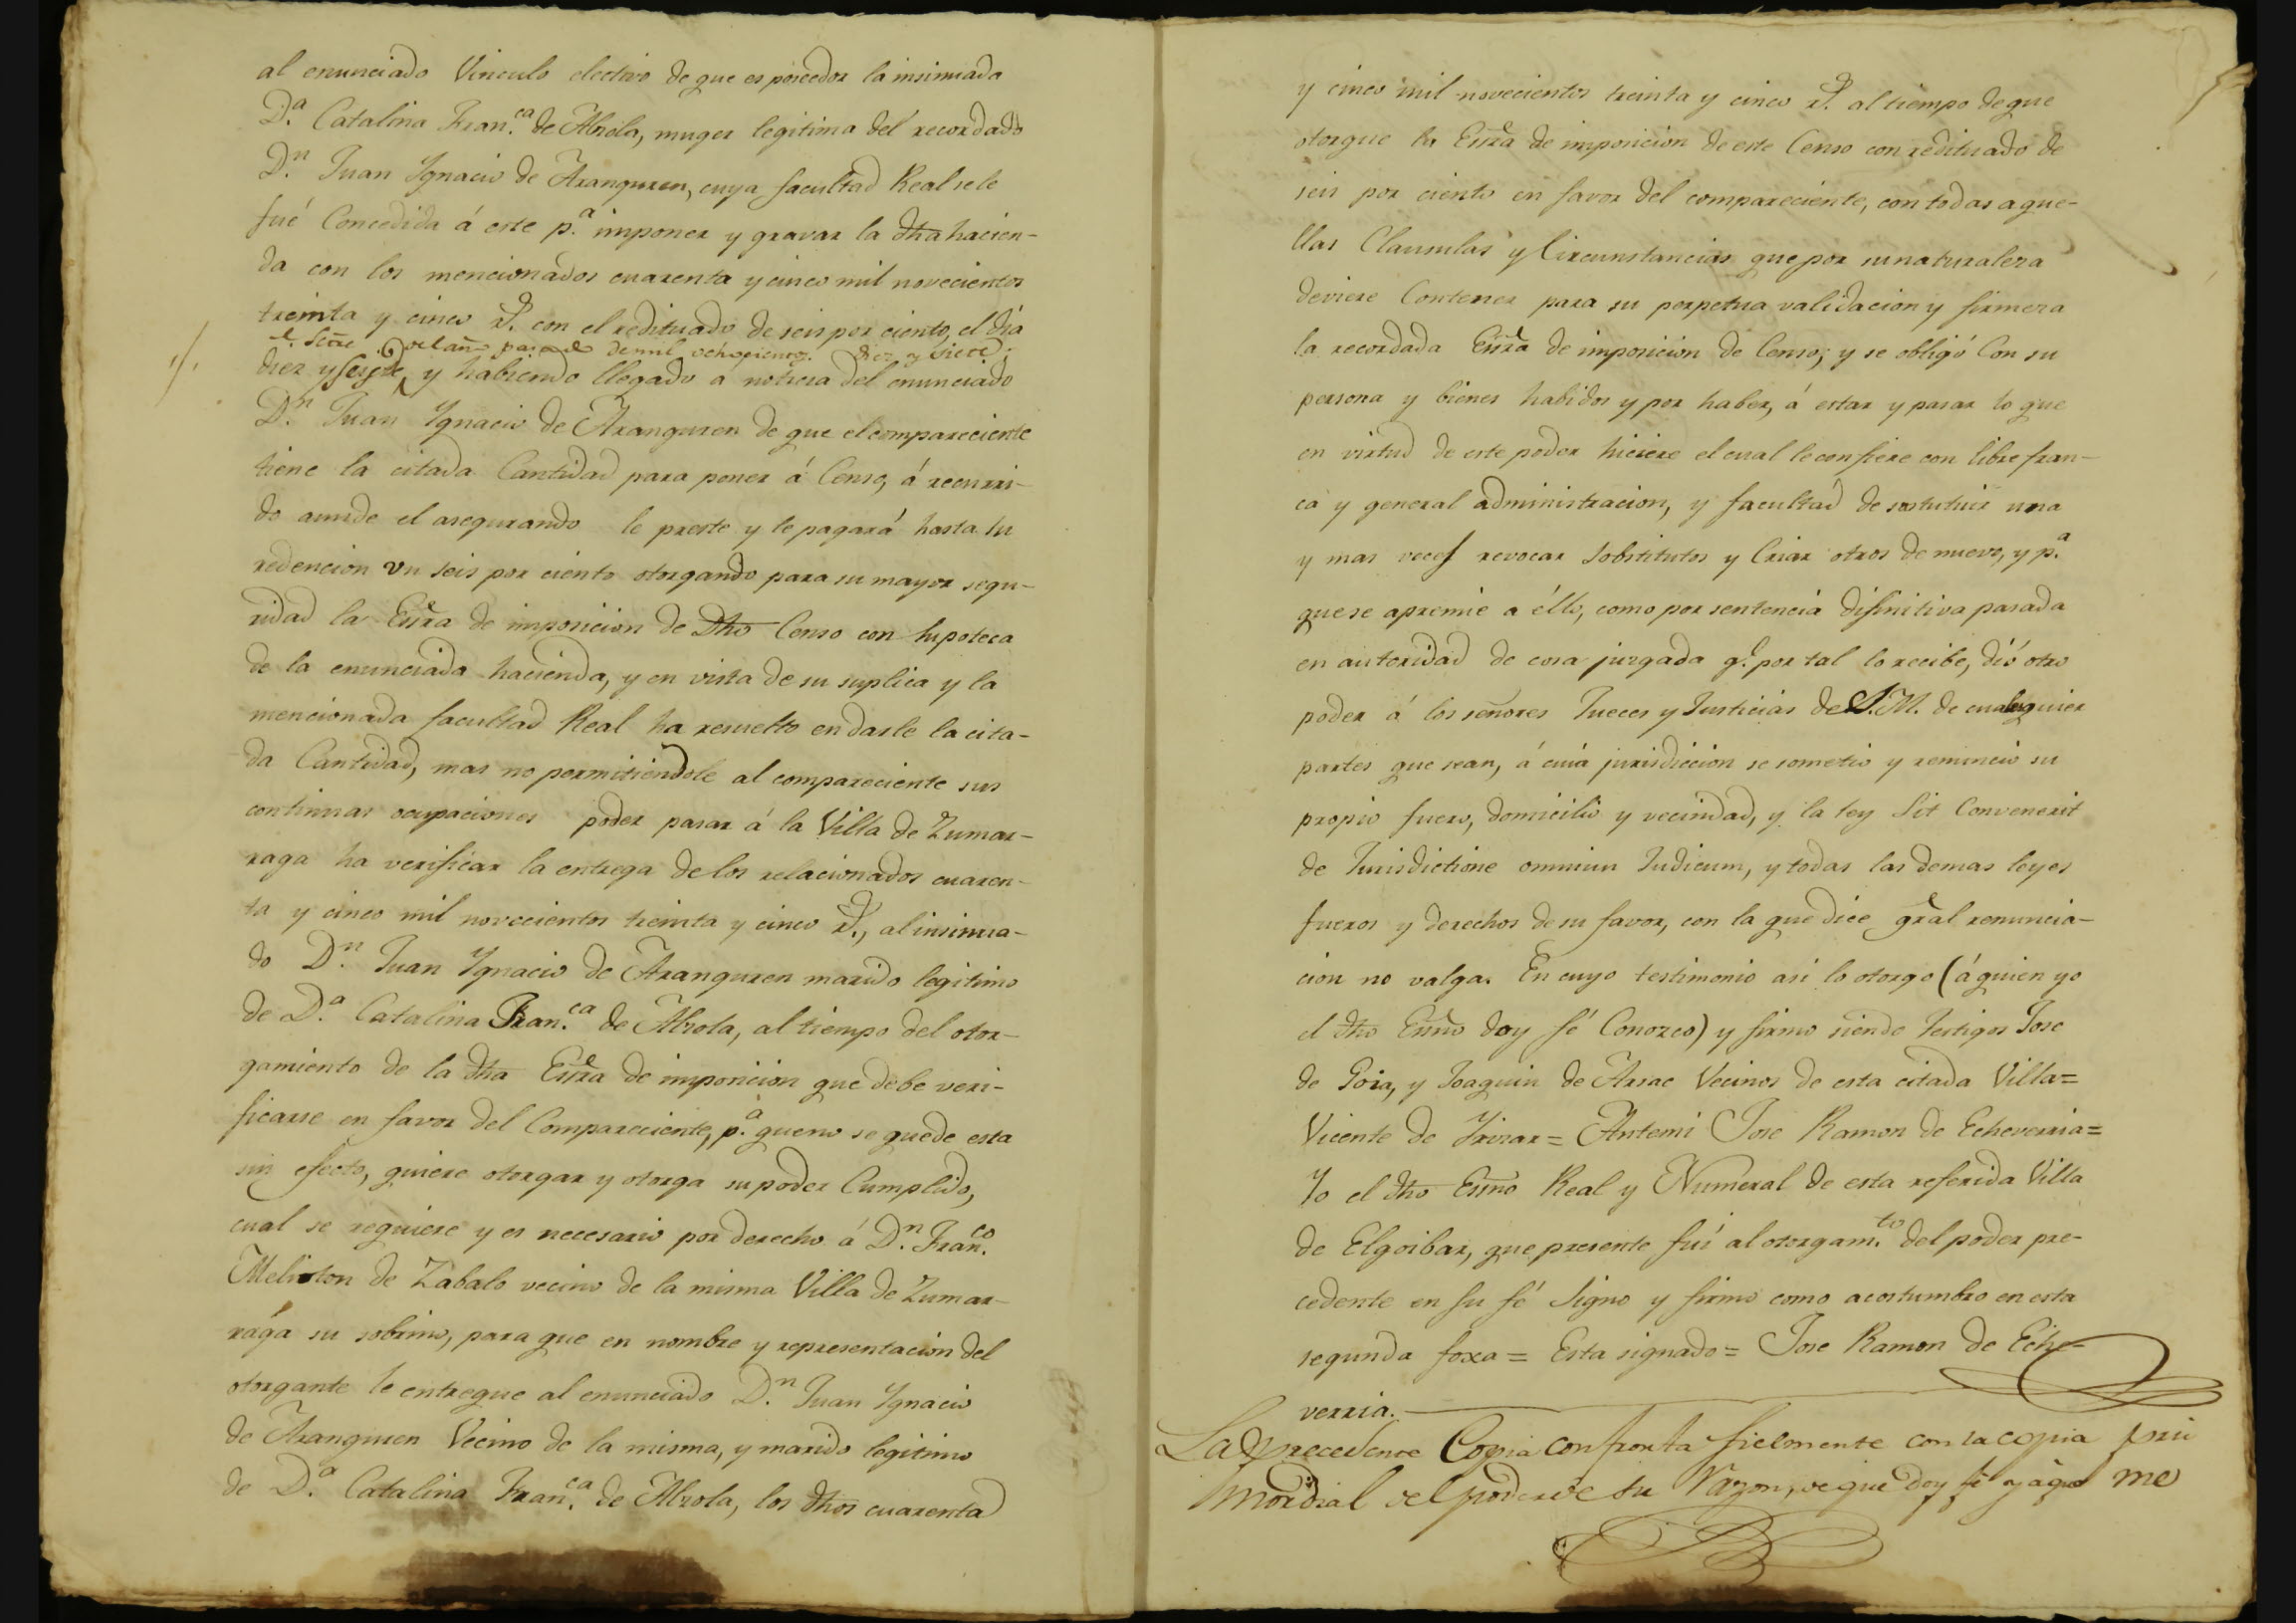 al enunciado Vinculo electivo de que es posedor la insinuada
D.ª Catalina Fran.ca de Alzola, muger legitima del recordado
D.n Juan Ygnacio de Aranguren, cuya facultad Real se le
fué Concedida á este p.ª imponer y gravar la dha hacien-
da con los mencionados cuarenta y cinco mil novecientos
treinta y cinco r.s con el redituado de seis por ciento, el dia
del año pasado de mil ochocientos diez y siete;
diez y siete, y habiendo llegado á noticia del enunciado
D.n Juan Ygnacio de Aranguren de que el compareciente
tiene la citada Cantidad para poner á Censo, á recurri-
do aunde el asegurando le preste y le pagará hasta su
redencion vn seis por ciento otorgando para su mayor segu-
ridad la Essra de imposicion de Dho Censo con hipoteca
de la enunciada hacienda, y en vista de su suplica y la
mencionada facultad Real ha resuelto en darle la cita-
da Cantidad, mas no permitiendole al compareciente sus
continuas ocupaciones poder pasar á la Villa de Zumar-
raga ha verificar la entrega de los relacionados cuaren-
ta y cinco mil novecientos treinta y cinco r.s, al insinua-
do D.n Juan Ygnacio de Aranguren marido legitimo
de D.ª Catalina Fran.ca de Alzola, al tiempo del otor-
gamiento de la dha Essra de imposicion que debe veri-
ficarse en favor del Compareciente, p.ª que no se quede esta
sin efecto, quiere otorgar y otorga su poder Cumplido,
cual se requiere y es necesario por derecho á D.n Fran.co
Meliton de Zabalo vecino de la misma Villa de Zumar-
rága su sobrino, para que en nombre y representacion del
otorgante le entregue al enunciado D.n Juan Ygnacio
de Aranguren Vecino de la misma, y marido legitimo
de D.ª Catalina Fran.ca de Alzola, los dhos cuarenta
y cinco mil novecientos treinta y cinco r.s al tiempo de que
otorgue la Essra de imposicion de este Censo con redituado de
seis por ciento en favor del compareciente, con todas aque-
llas Clausulas y Circunstancias que por su naturaleza
deviere Contener para su perpetua validacion y firmeza
la recordada Essra de imposicion de Censo; y se obligó Con su
persona y bienes habidos y por haber, á estar y pasar lo que
en virtud de este poder hiciere el cual le confiere con libre fran-
ca y general administracion, y facultad de sostutuir una
y mas veces revocar sobstitutos y Criar otros de nuevo, y p.ª
que se apremie a éllo, como por sentencia difinitiva pasada
en autoridad de cosa juzgada q.e por tal lo recibe, dió otro
poder á los señores Jueces y Justicias de S.M. de cualquier
partes que sean, á cuiá jurisdiccion se sometio y renuncio su
propio fuero, domicilio y vecindad, y la ley Sit Convenerit
de Jurisdictione omniun Judicum, y todas las demas leyes
fueros y derechos de su favor, con la que dice gral renuncia-
cion no valga. En cuyo testimonio asi lo otorgo (á quien yo
el dho Essno doy fé Conozco) y firmo siendo testigos Jose
de Goia, y Joaquin de Arsac Vecinos de esta citada Villa=
Vicente de Yrizar= Antemi Jose Ramon de Echeverria=
Yo el dho Essno Real y Numeral de esta referida Villa
de Elgoibar, que presente fuí al otorgam.to del poder pre-
cedente en su fé Signo y firmo como acostumbro en esta
segunda foxa= Esta signado= Jose Ramon de Eche-
verria.
La precedente Copia confronta fielmente con la copia pri
mordial del poder de su Razon, de que doy fe y a que me